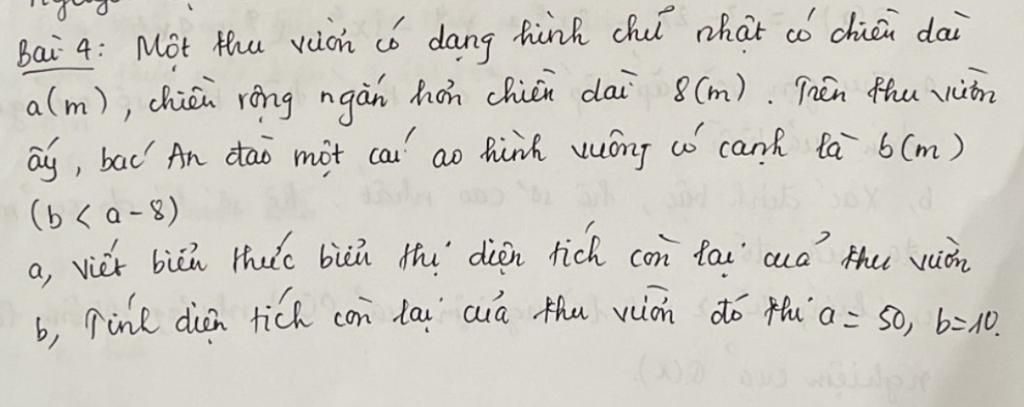 Bài 4: Một thu vườn có dạng hình chữ nhật có chiều dài
a(m), chiều rộng ngắn hơn chiều dài 8(m). Trên thu vườn
ấy, bác An đào một cái ao hình vuông có cạnh là b(m)
(b < a - 8)
a, viết biểu thức biểu thị diện tích còn lại của thu vườn
b, Tính diện tích còn lại của thu vườn đó thi a = 50, b=10.